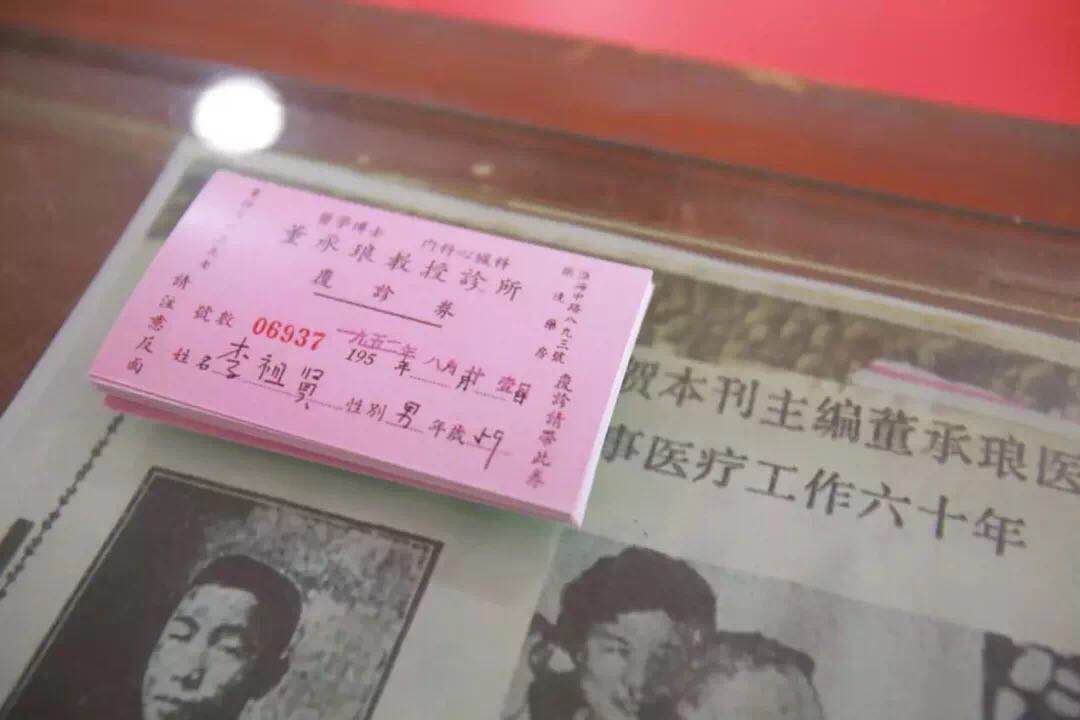 醫學博士 內科心臟科
董承琅教授診所
覆診券
號數 06937 一九五二年 195 年 八月廿 壹日
姓名 李祖賢 性別 男 年歲 59
請注意反面
淮海中路八九三號 覆診請帶此券
藥房
贺本刊主编董承琅医
事医疗工作六十年